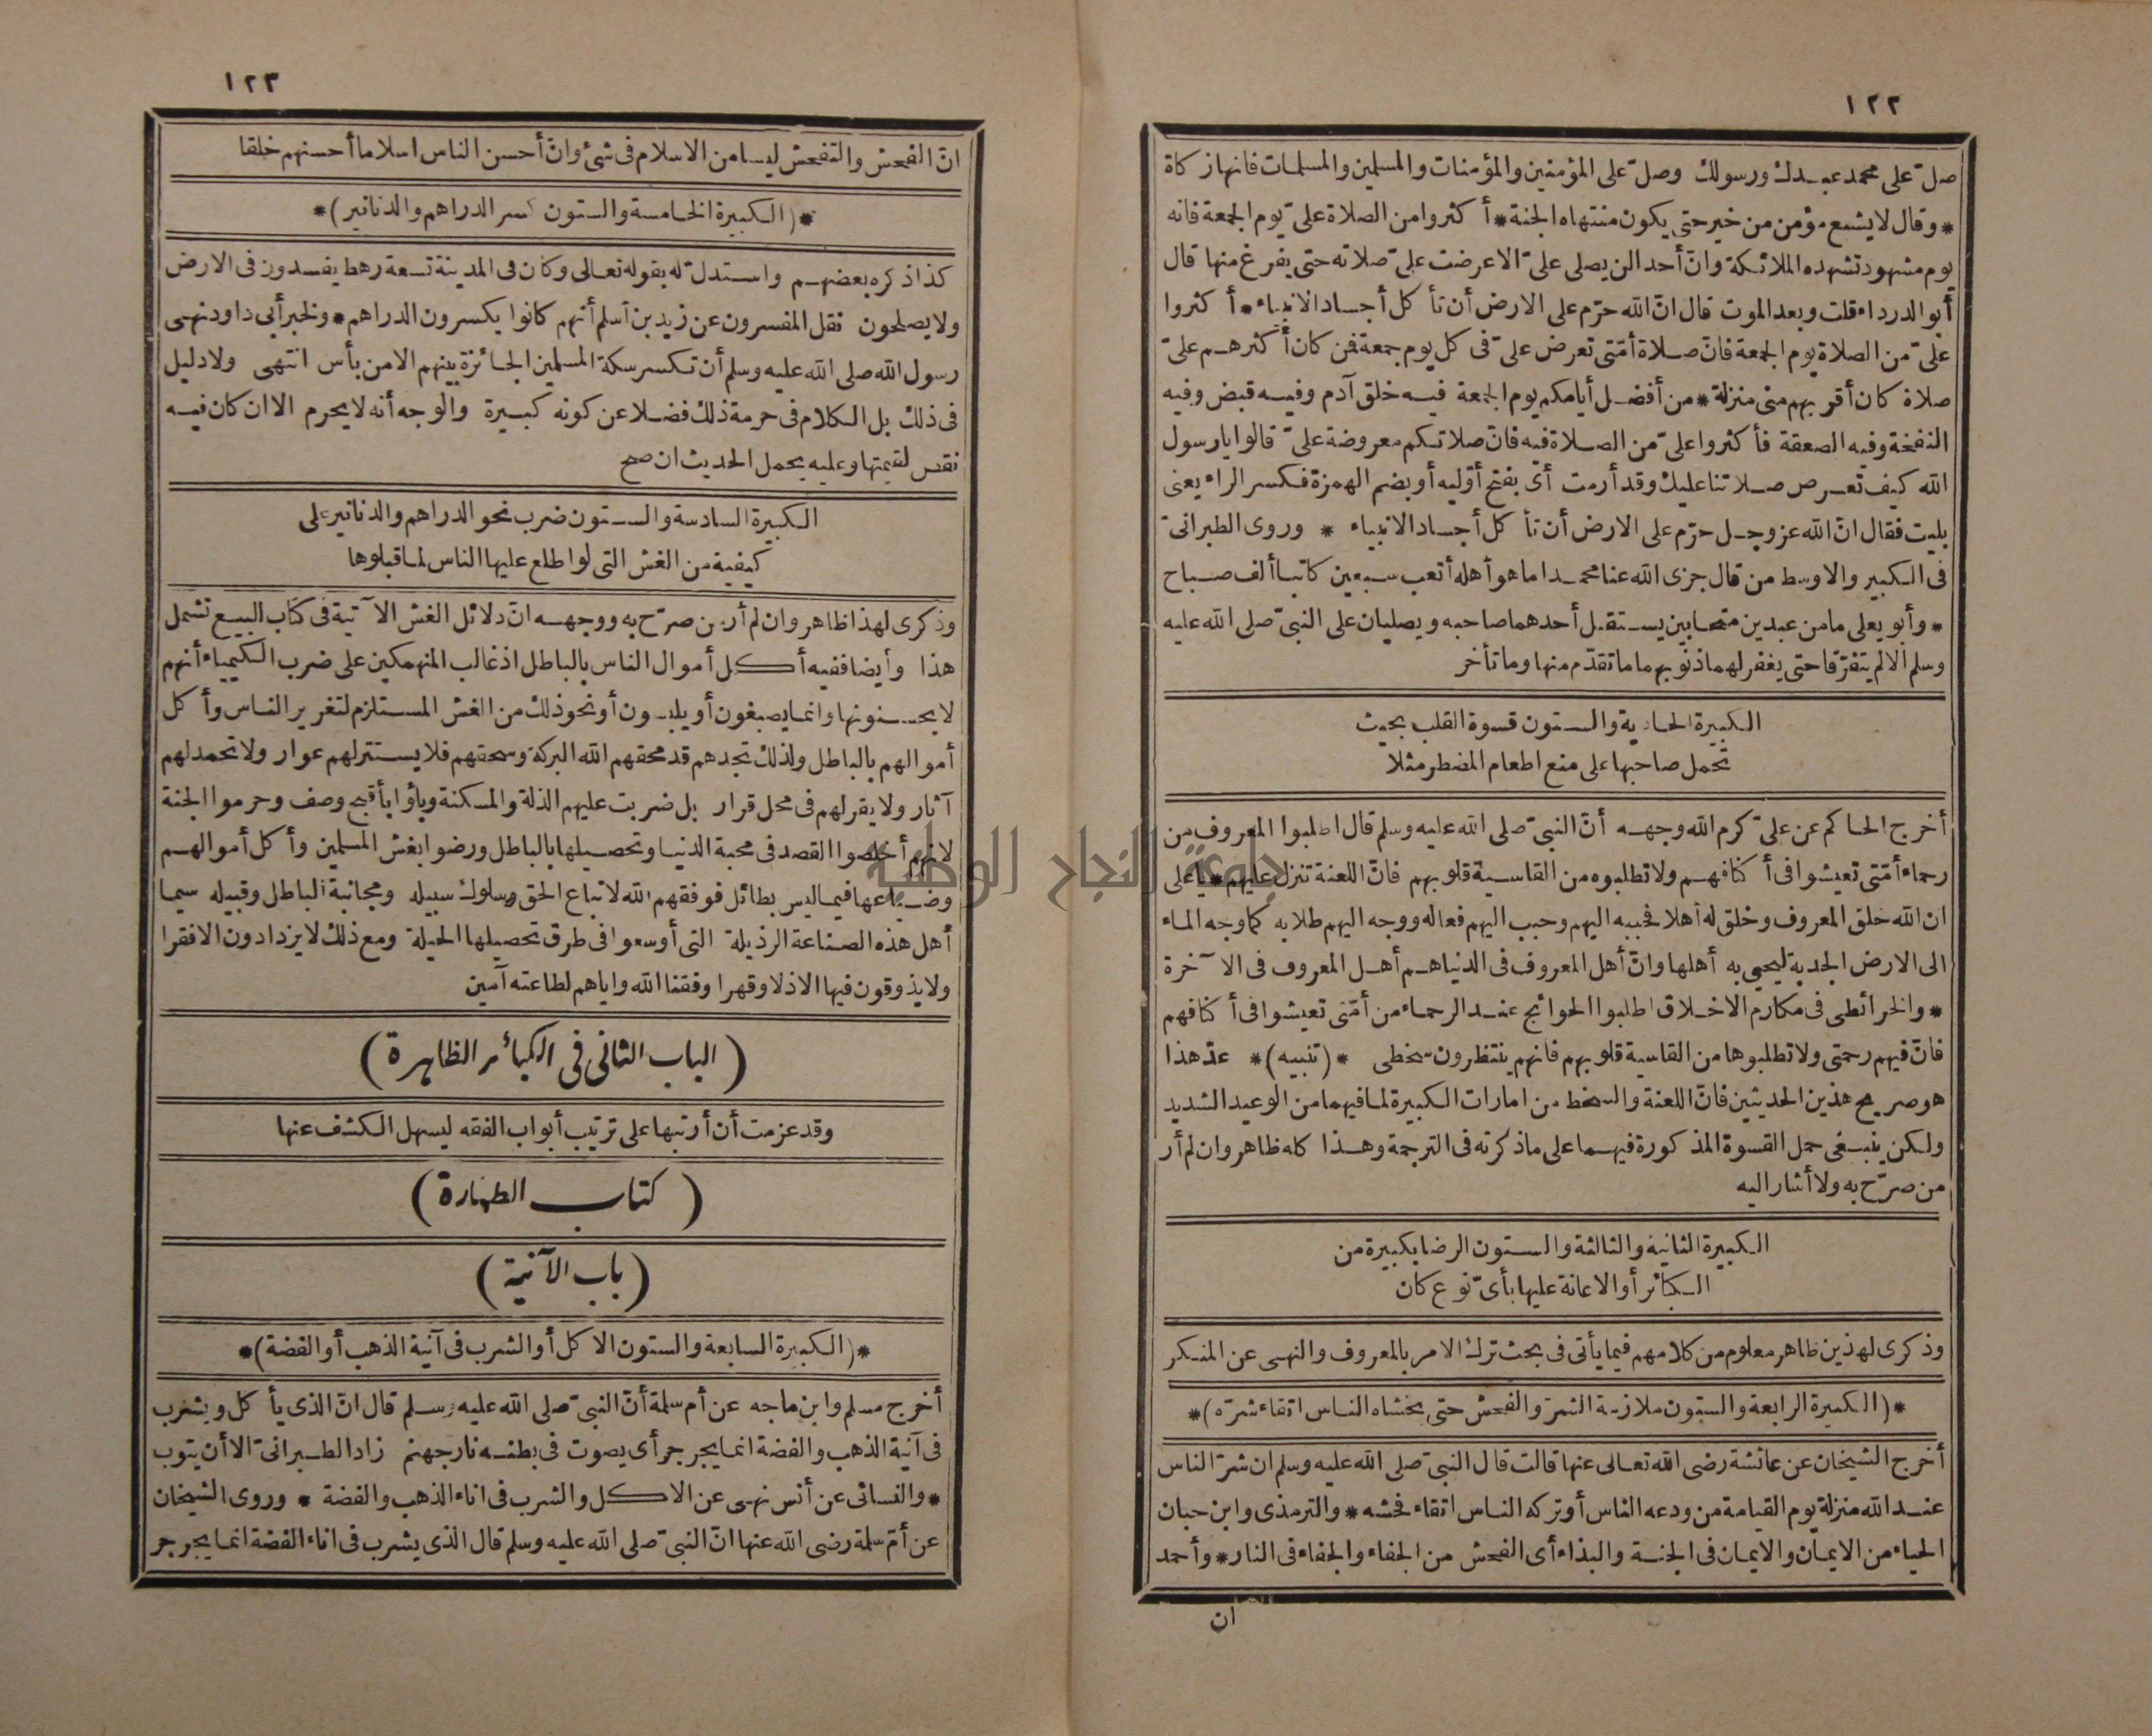 ١٢٢
صلّ على محمد عبدك ورسولك وصلّ على المؤمنين والمؤمنات والمسلمين والمسلمات فانها زكاة
* وقال لا يشبع مؤمن من خير حتى يكون منتهاه الجنة * أكثروا من الصلاة علىّ يوم الجمعة فانه
يوم مشهود تشهده الملائكة وانّ أحدا لن يصلى علىّ الا عرضت علىّ صلاته حتى يفرغ منها قال
أبو الدرداء قلت وبعد الموت قال انّ الله حرّم على الارض أن تأكل أجساد الانبياء * أكثروا
علىّ من الصلاة يوم الجمعة فانّ صلاة أمّتى تعرض علىّ فى كل يوم جمعة فمن كان أكثرهم علىّ
صلاة كان أقربهم منى منزلة * من أفضل أيامكم يوم الجمعة فيه خلق آدم وفيه قبض وفيه
النفخة وفيه الصعقة فأكثروا علىّ من الصلاة فيه فانّ صلاتكم معروضة علىّ قالوا يا رسول
الله كيف تعرض صلاتنا عليك وقد أرمت أى بفتح أوّليه أو بضم الهمزة فكسر الراء يعنى
بليت فقال انّ الله عز وجل حرّم على الارض أن تأكل أجساد الانبياء * وروى الطبرانىّ
فى الكبير والاوسط من قال جزى الله عنا محمدا ما هو أهله أتعب سبعين كاتبا ألف صباح
* وأبو يعلى ما من عبدين متحابين يستقبل أحدهما صاحبه ويصليان على النبىّ صلى الله عليه
وسلم الا لم يتفرّقا حتى يغفر لهما ذنوبهما ما تقدّم منها وما تأخر
الكبيرة الحادية والستون قسوة القلب بحيث
تحمل صاحبها على منع اطعام المضطر مثلا
أخرج الحاكم عن علىّ كرم الله وجهه أنّ النبىّ صلى الله عليه وسلم قال اطلبوا المعروف من
رحماء أمّتى تعيشوا فى أكنافهم ولا تطلبوه من القاسية قلوبهم فانّ اللعنة تنزل عليهم * يا على
ان الله خلق المعروف وخلق له أهلا فحببه اليهم وحبب اليهم فعاله ووجه اليهم طلابه كما وجه الماء
الى الارض الجدبة ليحيى به أهلها وانّ أهل المعروف فى الدنيا هم أهل المعروف فى الآخرة
* والخرائطى فى مكارم الاخلاق اطلبوا الحوائج عند الرحماء من أمّتى تعيشوا فى أكنافهم
فانّ فيهم رحمتى ولا تطلبوها من القاسية قلوبهم فانهم ينتظرون سخطى * (تنبيه) * عدّ هذا
هو صريح هذين الحديثين فانّ اللعنة والسخط من امارات الكبيرة لما فيهما من الوعيد الشديد
ولكن ينبغى حمل القسوة المذكورة فيهما على ما ذكرته فى الترجمة وهذا كله ظاهر وان لم أر
من صرّح به ولا أشار اليه
الكبيرة الثانية والثالثة والستون الرضا بكبيرة من
الكبائر أو الاعانة عليها بأىّ نوع كان
وذكرى لهذين ظاهر معلوم من كلامهم فيما يأتى فى بحث ترك الامر بالمعروف والنهى عن المنكر
* (الكبيرة الرابعة والستون ملازمة الشرّ والفحش حتى يخشاه الناس اتقاء شرّه) *
أخرج الشيخان عن عائشة رضى الله تعالى عنها قالت قال النبىّ صلى الله عليه وسلم ان شرّ الناس
عند الله منزلة يوم القيامة من ودعه الناس أو تركه الناس اتقاء فحشه * والترمذى وابن حبان
الحياء من الايمان والايمان فى الجنة والبذاء أى الفحش من الجفاء والجفاء فى النار * وأحمد
ان
١٢٣
انّ الفحش والتفحش ليسا من الاسلام فى شئ وانّ أحسن الناس اسلاما أحسنهم خلقا
* (الكبيرة الخامسة والستون كسر الدراهم والدنانير) *
كذا ذكره بعضهم واستدلّ له بقوله تعالى وكان فى المدينة تسعة رهط يفسدون فى الارض
ولا يصلحون نقل المفسرون عن زيد بن أسلم أنهم كانوا يكسرون الدراهم * ولخبر أبى داود نهى
رسول الله صلى الله عليه وسلم أن تكسر سكة المسلمين الجائزة بينهم الا من بأس انتهى ولا دليل
فى ذلك بل الكلام فى حرمة ذلك فضلا عن كونه كبيرة والوجه أنه لا يحرم الا ان كان فيه
نقص لقيمتها وعليه يحمل الحديث ان صح
الكبيرة السادسة والستون ضرب نحو الدراهم والدنانير على
كيفية من الغش التى لو اطلع عليها الناس لما قبلوها
وذكرى لهذا ظاهر وان لم أر من صرّح به ووجهه انّ دلائل الغش الآتية فى كتاب البيع تشمل
هذا وأيضا ففيه أكل أموال الناس بالباطل اذ غالب المنهمكين على ضرب الكيمياء أنهم
لا يحسنونها وانما يصبغون أو يلبسون أو نحو ذلك من الغش المستلزم لتغرير الناس وأكل
أموالهم بالباطل ولذلك تجدهم قد محقهم الله البركة وسحقهم فلا يستتر لهم عوار ولا تحمد لهم
آثار ولا يقر لهم فى محل قرار بل ضربت عليهم الذلة والمسكنة وباؤا بأقبح وصف وحرموا الجنة
لانهم أخلصوا القصد فى محبة الدنيا وتحصيلها بالباطل ورضوا بغش المسلمين وأكل أموالهم
وضياعها فيما ليس بطائل فوفقهم الله لاتباع الحق وسلوك سبيله ومجانبة الباطل وقبيله سيما
أهل هذه الصناعة الرذيلة التى أوسعوا فى طرق تحصيلها الحيلة ومع ذلك لا يزدادون الا فقرا
ولا يذوقون فيها الا ذلا وقهرا وفقنا الله واياهم لطاعته آمين
(الباب الثانى فى الكبائر الظاهرة)
وقد عزمت أن أرتبها على ترتيب أبواب الفقه ليسهل الكشف عنها
(كتاب الطهارة)
(باب الآنية)
* (الكبيرة السابعة والستون الاكل أو الشرب فى آنية الذهب أو الفضة) *
أخرج مسلم وابن ماجه عن أم سلمة أنّ النبىّ صلى الله عليه وسلم قال انّ الذى يأكل ويشرب
فى آنية الذهب والفضة انما يجرجر أى يصوت فى بطنه نار جهنم زاد الطبرانىّ الا أن يتوب
* والنسائى عن أنس نهى عن الاكل والشرب فى اناء الذهب والفضة * وروى الشيخان
عن أمّ سلمة رضى الله عنها انّ النبىّ صلى الله عليه وسلم قال الذى يشرب فى اناء الفضة انما يجرجر
جامعة النجاح الوطنية